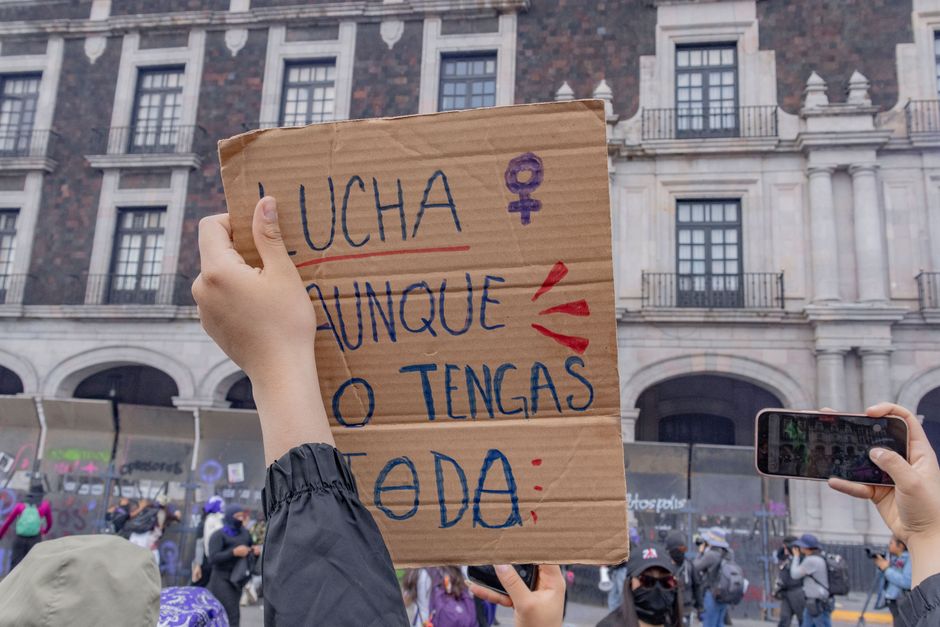 LUCHA
AUNQUE
O TENGAS
TODA:
23